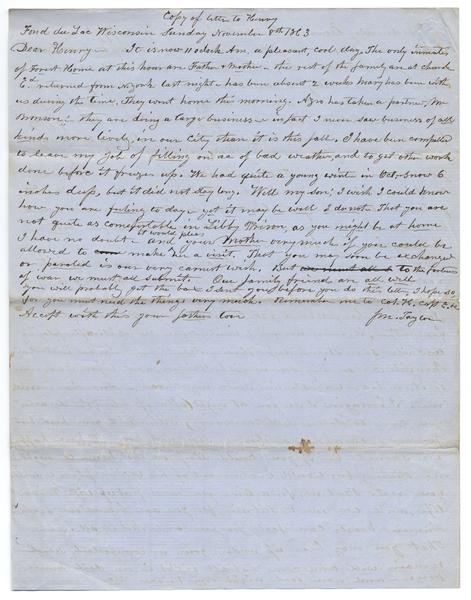 Copy of letter to Henry
Fond du Lac Wisconsin Sunday November 8th 1863
Dear Henry— It is now 11 oclock Am. a pleasant, cool day. The only inmates
of Forest Home at this hour are Father & Mother— the rest of the family are at church
Ed returned from N. York last night— has bin about 2 weeks Mary has bin with
us during the time, They went home this morning. has taken a partner, Mr
they are doing a large business— in fact I never saw business of all
kinds more lively in our city than it is this fall. I have bin compelled
to leave my job of filling on ac of bad weather, and to get other work
done before it freezes up. We had quite a young winter in Oct. snow 6
inches deep, but it did not stay long. Well my son, I wish I could know
how you are feeling to day— yet it may be well I do not. That you are
not quite as comfortable in Libby Prison, as you might be at home
I have no doubt— and it would pleas your Mother very much if you could be
allowed to make her a visit. That you may soon be exchanged
or paroled is our very earnest wish. But to the fortunes
of war we must all submit. Our family & friend are all well
You will probably get the box I send you before you do this letter, I hope so
for you must need the things very much. Remember me to Col. K. Capt
Accept with this your fathers love J. M. Taylor